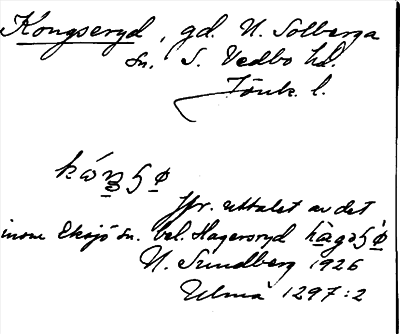 Kongseryd, gd. N. Solberga
sn. S. Vedbo hd.
Jönk. l.
Jfr. uttalet av det
inom Eksjö sn. bel. Hagersryd
N. Sundberg 1926
Ulma 1297:2